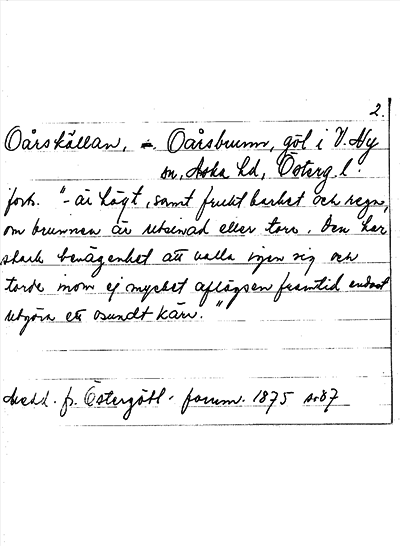 2.
Oårskällan, – Oårsbrunn, göl i V. Ny
sn, Aska hd, Östergl.
forts. "– är lågt, samt frukt barhet och regn,
om brunnen är utsinad eller torr. Den har
stark benägenhet att valla igen sig och
torde inom ej mycket aflägsen framtid endast
utgöra ett osundt kärr."
Medd. fr. Östergötl. fornm. 1875 s. 87